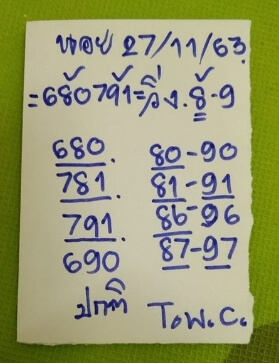 นอย 27/11/63
=68้079้1=วิ่ง.8้-9
680. 80-90
781. 81-91
791. 86-96
690 87-97
ปกติ T.W.C.